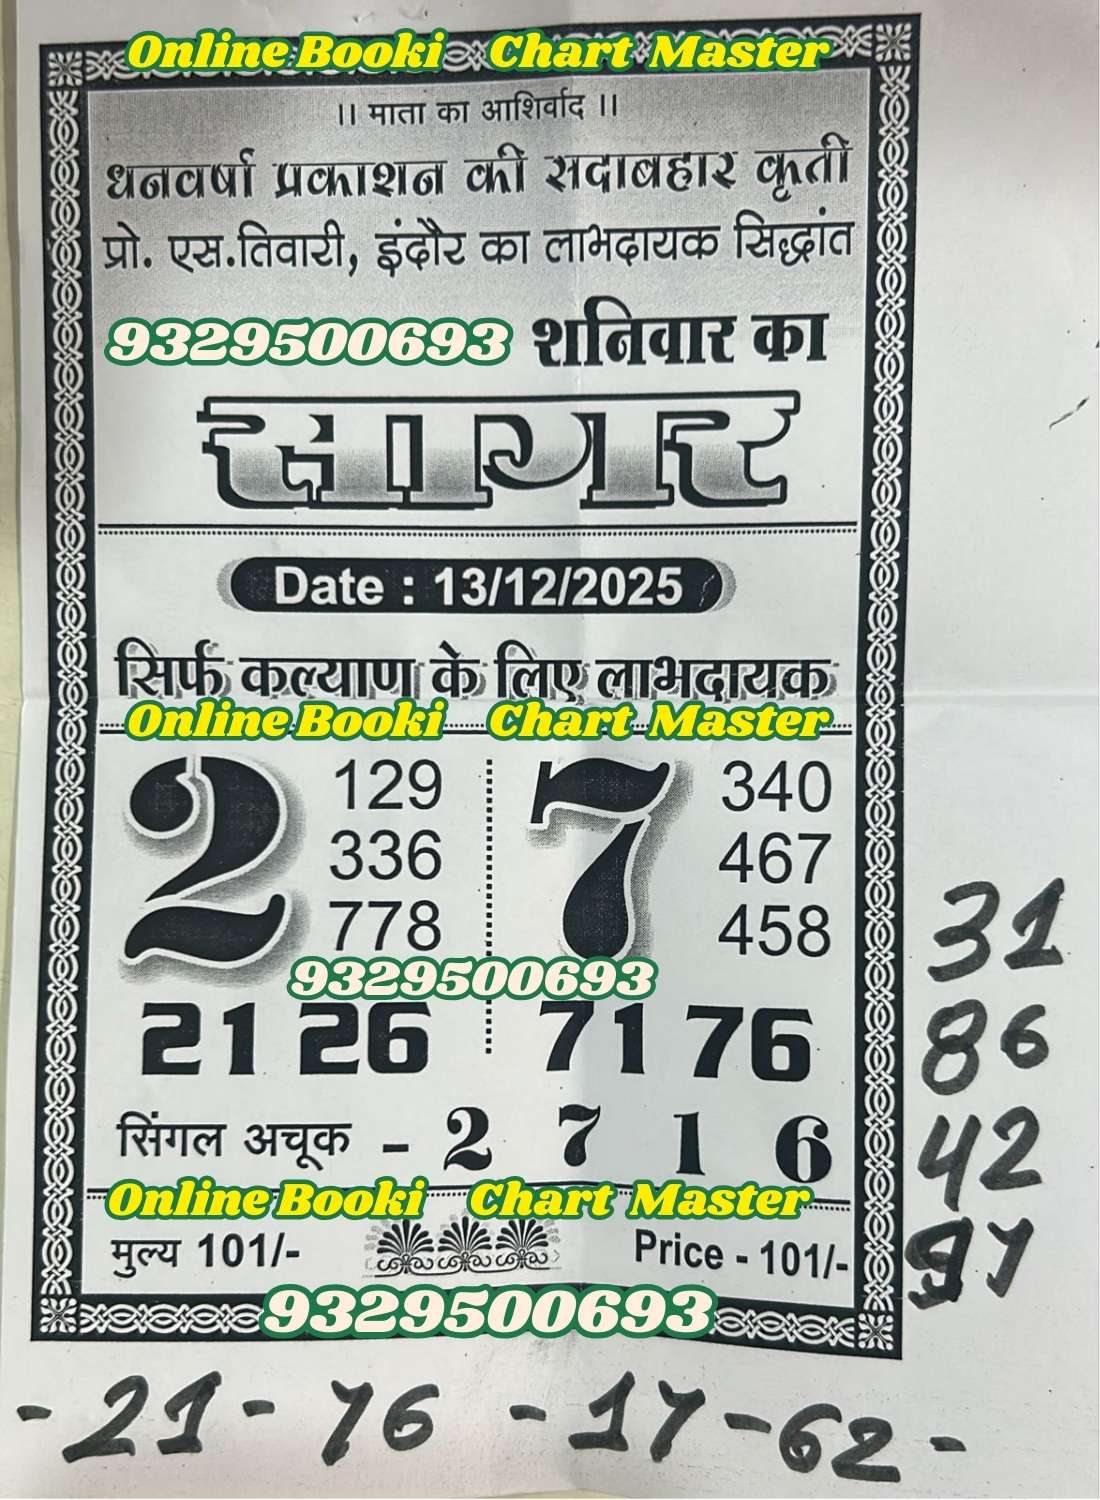 Online Booki Chart Master
।। माता का आशिर्वाद ।।
धनवर्षा प्रकाशन की सदाबहार कृती
प्रो. एस.तिवारी, इंदौर का लाभदायक सिद्धांत
9329500693 शनिवार का
सागर
Date : 13/12/2025
सिर्फ कल्याण के लिए लाभदायक
Online Booki Chart Master
2 129 7 340
336 467
778 458
9329500693
21 26 71 76
सिंगल अचूक - 2 7 1 6
Online Booki Chart Master
मुल्य 101/- Price - 101/-
9329500693
31
86
42
97
- 21 - 76 - 17 - 62 -